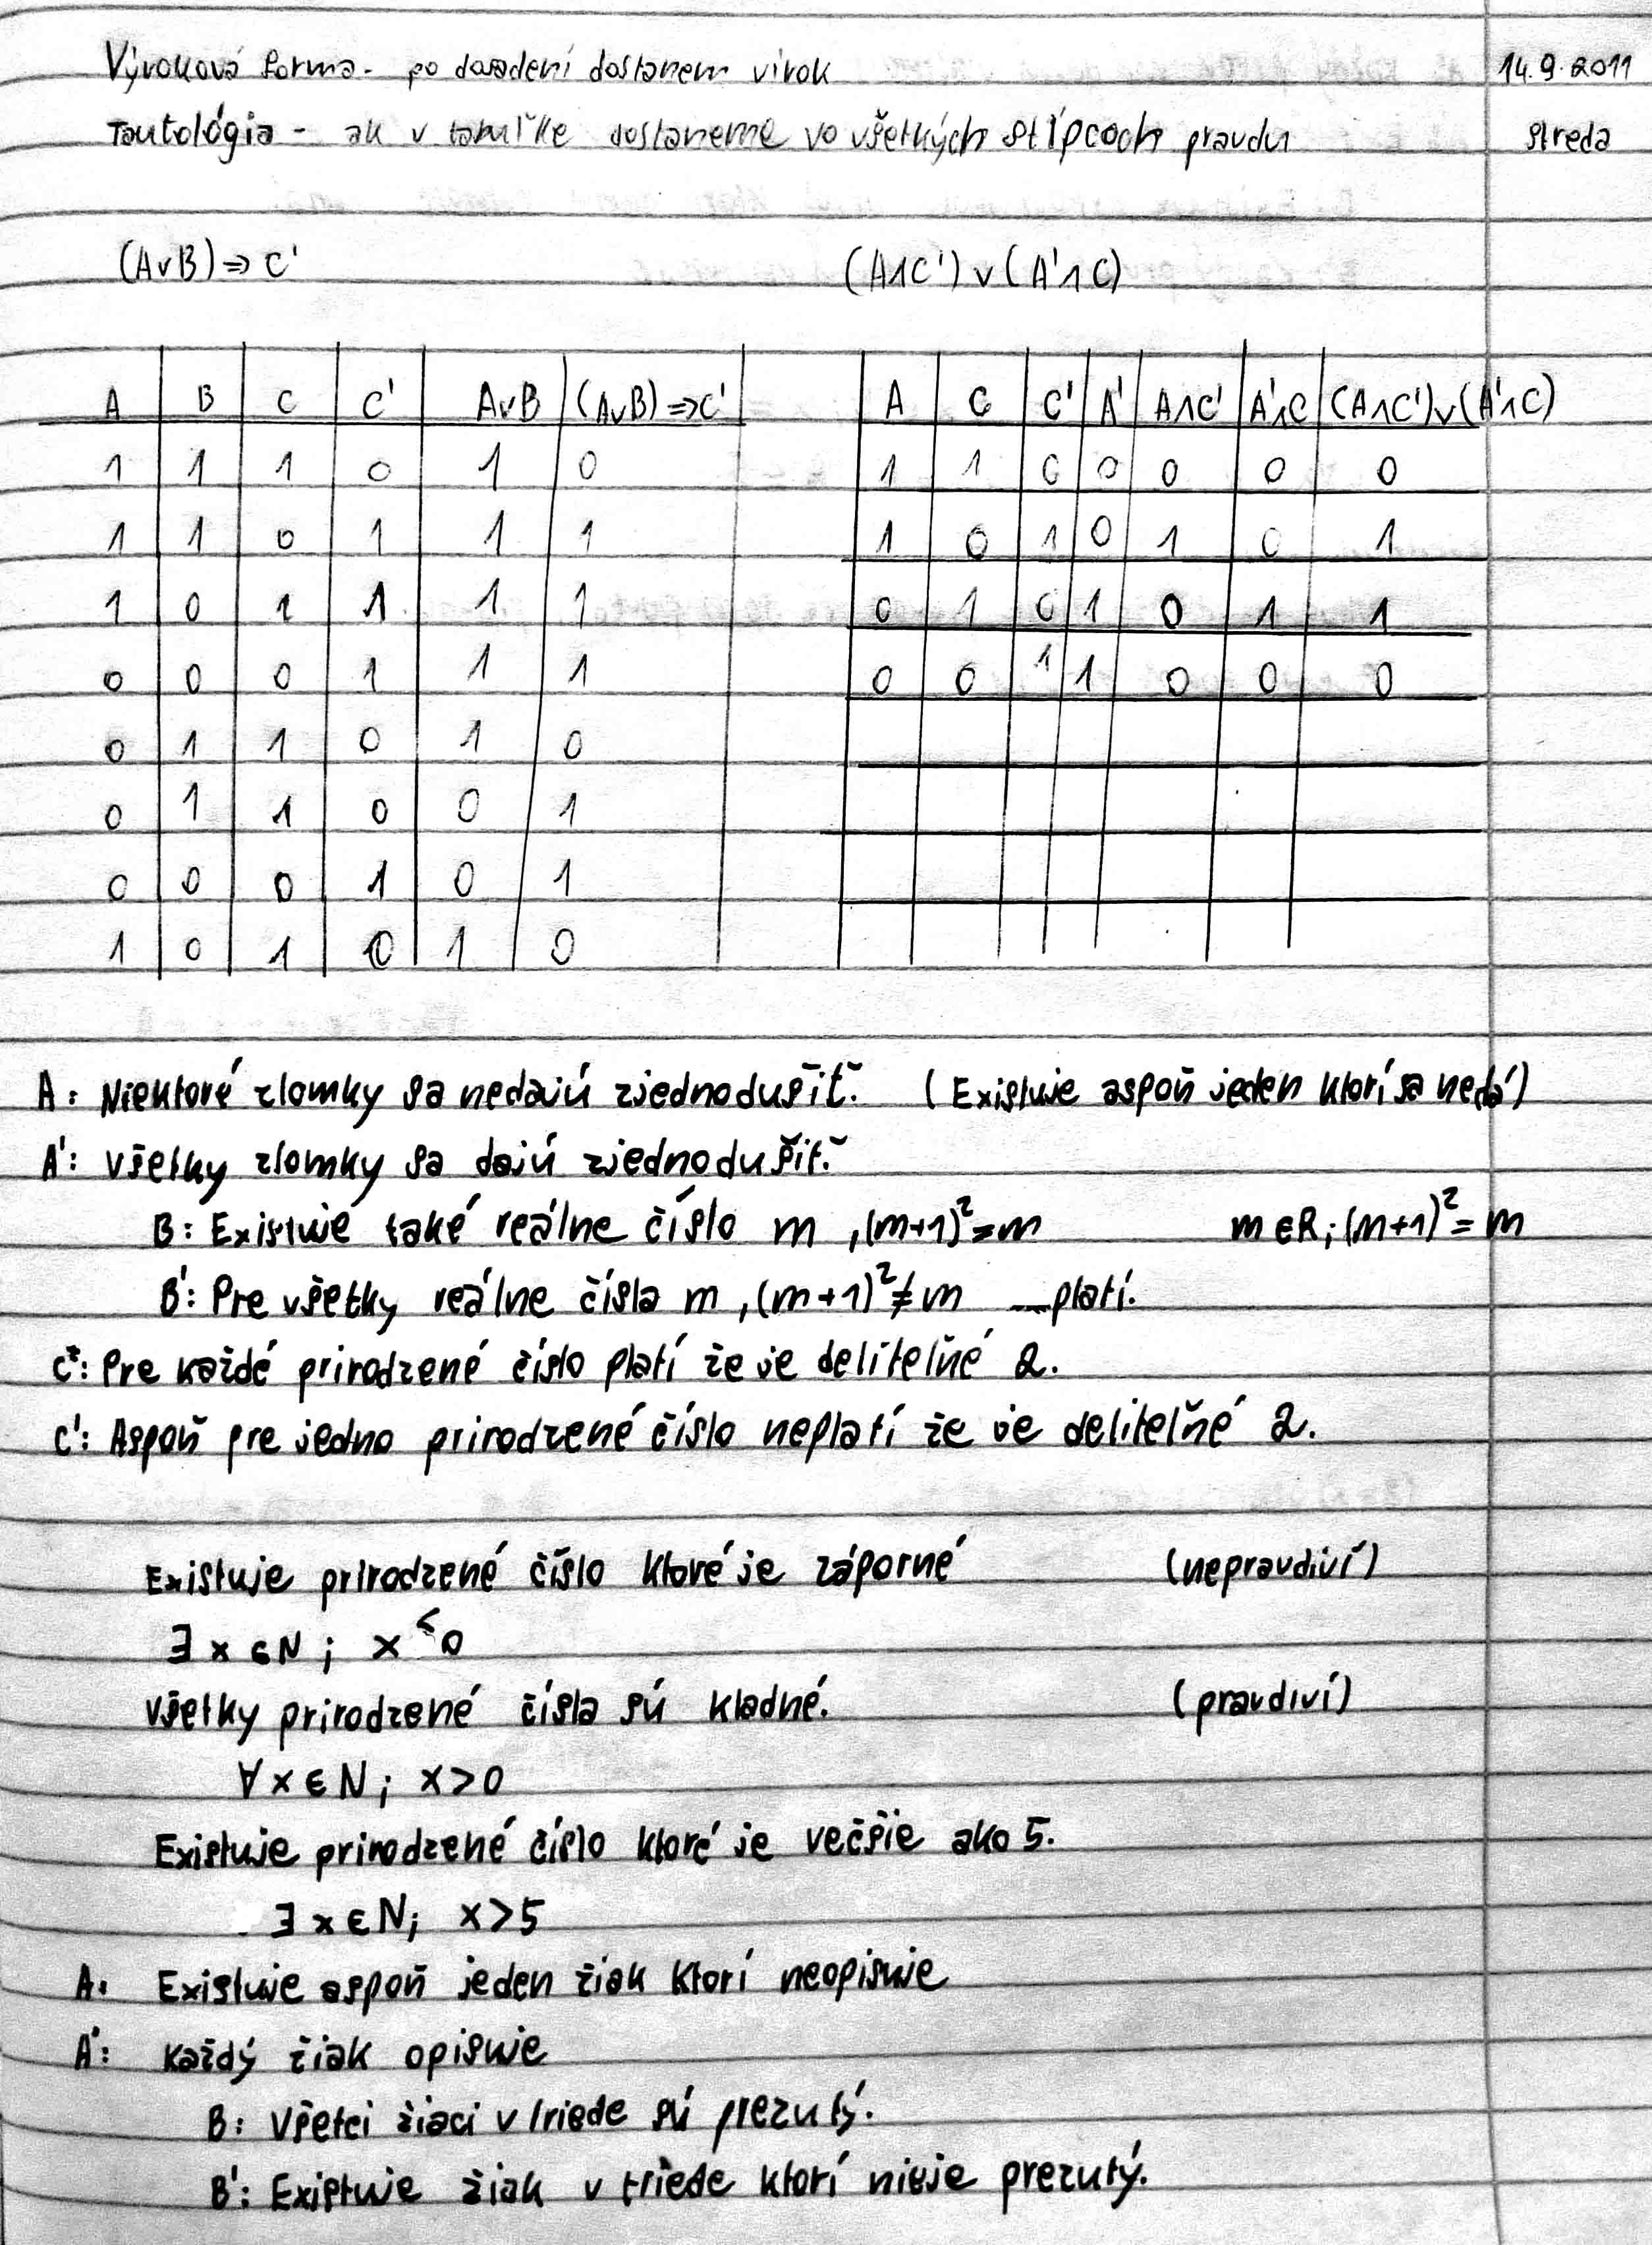 Výroková forma - po dosadení dostanem vírok 14.9.2011
Tautológia - ak v tabuľke dostaneme vo všetkých stĺpcoch pravdu streda
(A∨B)⇒C' (A∧C')∨(A'∧C)
A B C C' A∨B (A∨B)⇒C' A C C' A' A∧C' A'∧C (A∧C')∨(A'∧C)
1 1 1 0 1 0 1 1 0 0 0 0 0
1 1 0 1 1 1 1 0 1 0 1 0 1
1 0 1 1 1 1 0 1 0 1 0 1 1
0 0 0 1 1 1 0 0 1 1 0 0 0
0 1 1 0 1 0
0 1 1 0 0 1
0 0 0 1 0 1
1 0 1 0 1 0
A: Niektoré zlomky sa nedajú zjednodušiť. (Existuje aspoň jeden ktorí sa nedá)
A': všetky zlomky sa dajú zjednodušiť.
B: Existuje také reálne číslo m, (m+1)²=m m∈R; (m+1)²=m
B': Pre všetky reálne čísla m, (m+1)²≠m __platí.
C: Pre každé prirodzené číslo platí že je deliteľné 2.
C': Aspoň pre jedno prirodzené číslo neplatí že je deliteľné 2.
Existuje prirodzené číslo ktoré je záporné (nepravdiví)
∃x∈N; x<0
všetky prirodzené čísla sú kladné. (pravdiví)
∀x∈N; x>0
Existuje prirodzené číslo ktoré je večšie ako 5.
∃x∈N; x>5
A: Existuje aspoň jeden žiak ktorí neopisuje
A': každý žiak opisuje
B: Všetci žiaci v triede sú prezutý.
B': Existuje žiak v triede ktorí nieje prezutý.